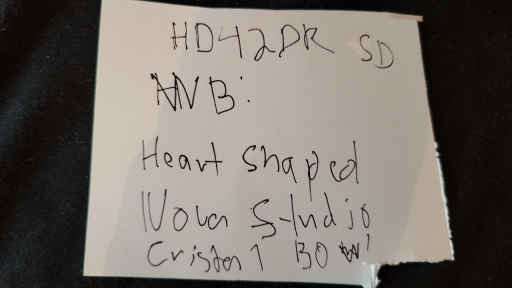 HD42DR SD
NB:
Heart shaped
Nova Studio
Cristal BOW